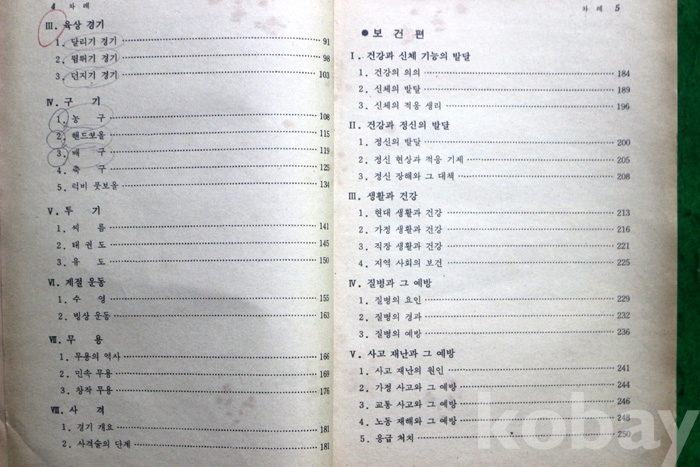 4 차 례
Ⅲ. 육상 경기
1. 달리기 경기 91
2. 뜀뛰기 경기 98
3. 던지기 경기 103
Ⅳ. 구 기
1. 농 구 108
2. 핸드보올 115
3. 배 구 119
4. 축 구 125
5. 럭비 풋보올 134
Ⅴ. 투 기
1. 씨 름 141
2. 태 권 도 145
3. 유 도 150
Ⅵ. 계절 운동
1. 수 영 155
2. 빙상 운동 163
Ⅶ. 무 용
1. 무용의 역사 166
2. 민속 무용 169
3. 창작 무용 176
Ⅷ. 사 격
1. 경기 개요 181
2. 사격술의 단계 181
차 례 5
● 보 건 편
Ⅰ. 건강과 신체 기능의 발달
1. 건강의 의의 184
2. 신체의 발달 189
3. 신체의 적응 생리 196
Ⅱ. 건강과 정신의 발달
1. 정신의 발달 200
2. 정신 현상과 적응 기제 205
3. 정신 장해와 그 대체 208
Ⅲ. 생활과 건강
1. 현대 생활과 건강 213
2. 가정 생활과 건강 216
3. 직장 생활과 건강 221
4. 지역 사회의 보건 225
Ⅳ. 질병과 그 예방
1. 질병의 요인 229
2. 질병의 경과 232
3. 질병의 예방 236
Ⅴ. 사고 재난과 그 예방
1. 사고 재난의 원인 241
2. 가정 사고와 그 예방 244
3. 교통 사고와 그 예방 246
4. 노동 재해와 그 예방 248
5. 응급 처치 250
kobay